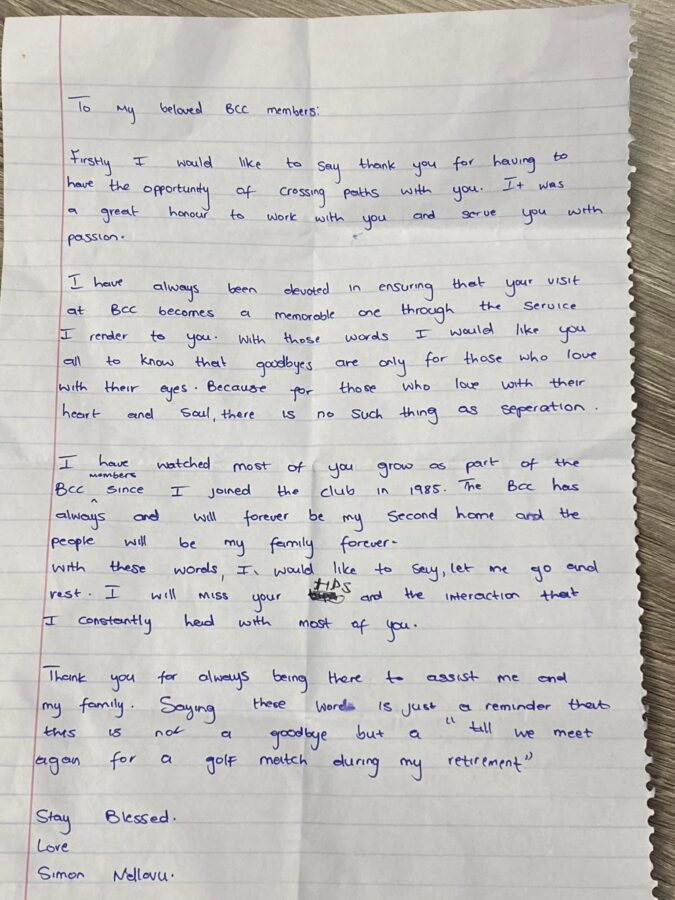 To My beloved BCC members:
Firstly I would like to say thank you for having to
have the opportunity of crossing paths with you. It was
a great honour to work with you and serve you with
passion.
I have always been devoted in ensuring that your visit
at BCC becomes a memorable one through the service
I render to you. With those words I would like you
all to know that goodbyes are only for those who love
with their eyes. Because for those who love with their
heart and soul, there is no such thing as seperation.
I have watched most of you grow as part of the
BCC members since I joined the club in 1985. The BCC has
always and will forever be my second home and the
people will be my family forever.
With these words, I would like to say, let me go and
rest. I will miss your TIPS and the interaction that
I constantly had with most of you.
Thank you for always being there to assist me and
my family. Saying these words is just a reminder that
this is not a goodbye but a "till we meet
again for a golf match during my retirement"
Stay Blessed.
Love
Simon Ndlovu.